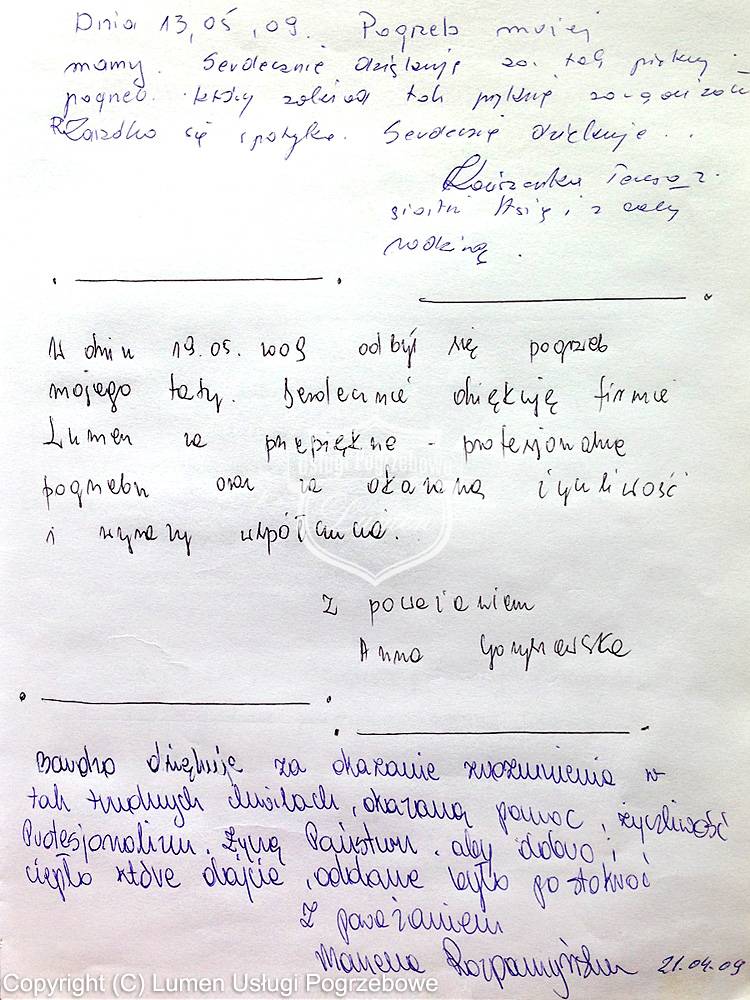 Dnia 13,05,09. Pogrzeb mojej
mamy. Serdecznie dziękuję za tak piękny
pogrzeb. który został tak pięknie
Rzadko się spotyka. Serdecznie dziękuje...
Teresa z
siostrą i z całą
rodziną.
W dniu 19.05.2009 odbył się pogrzeb
mojego taty. Serdecznie dziękuję firmie
Lumen za przepiękne - profesjonalne
pogrzebu oraz za okazaną życzliwość
i wyrazy współczucia.
Usługi Pogrzebowe
Lumen
Z poważaniem
Anna
Bardzo dziękuję za okazanie zrozumienia w
tak trudnych chwilach, okazaną pomoc, życzliwość
Profesjonalizm. Życzę Państwu. aby dobro i
ciepło które dajecie, oddane było po stokroć
Z poważaniem
Marzena 21.04.09
Copyright (C) Lumen Usługi Pogrzebowe